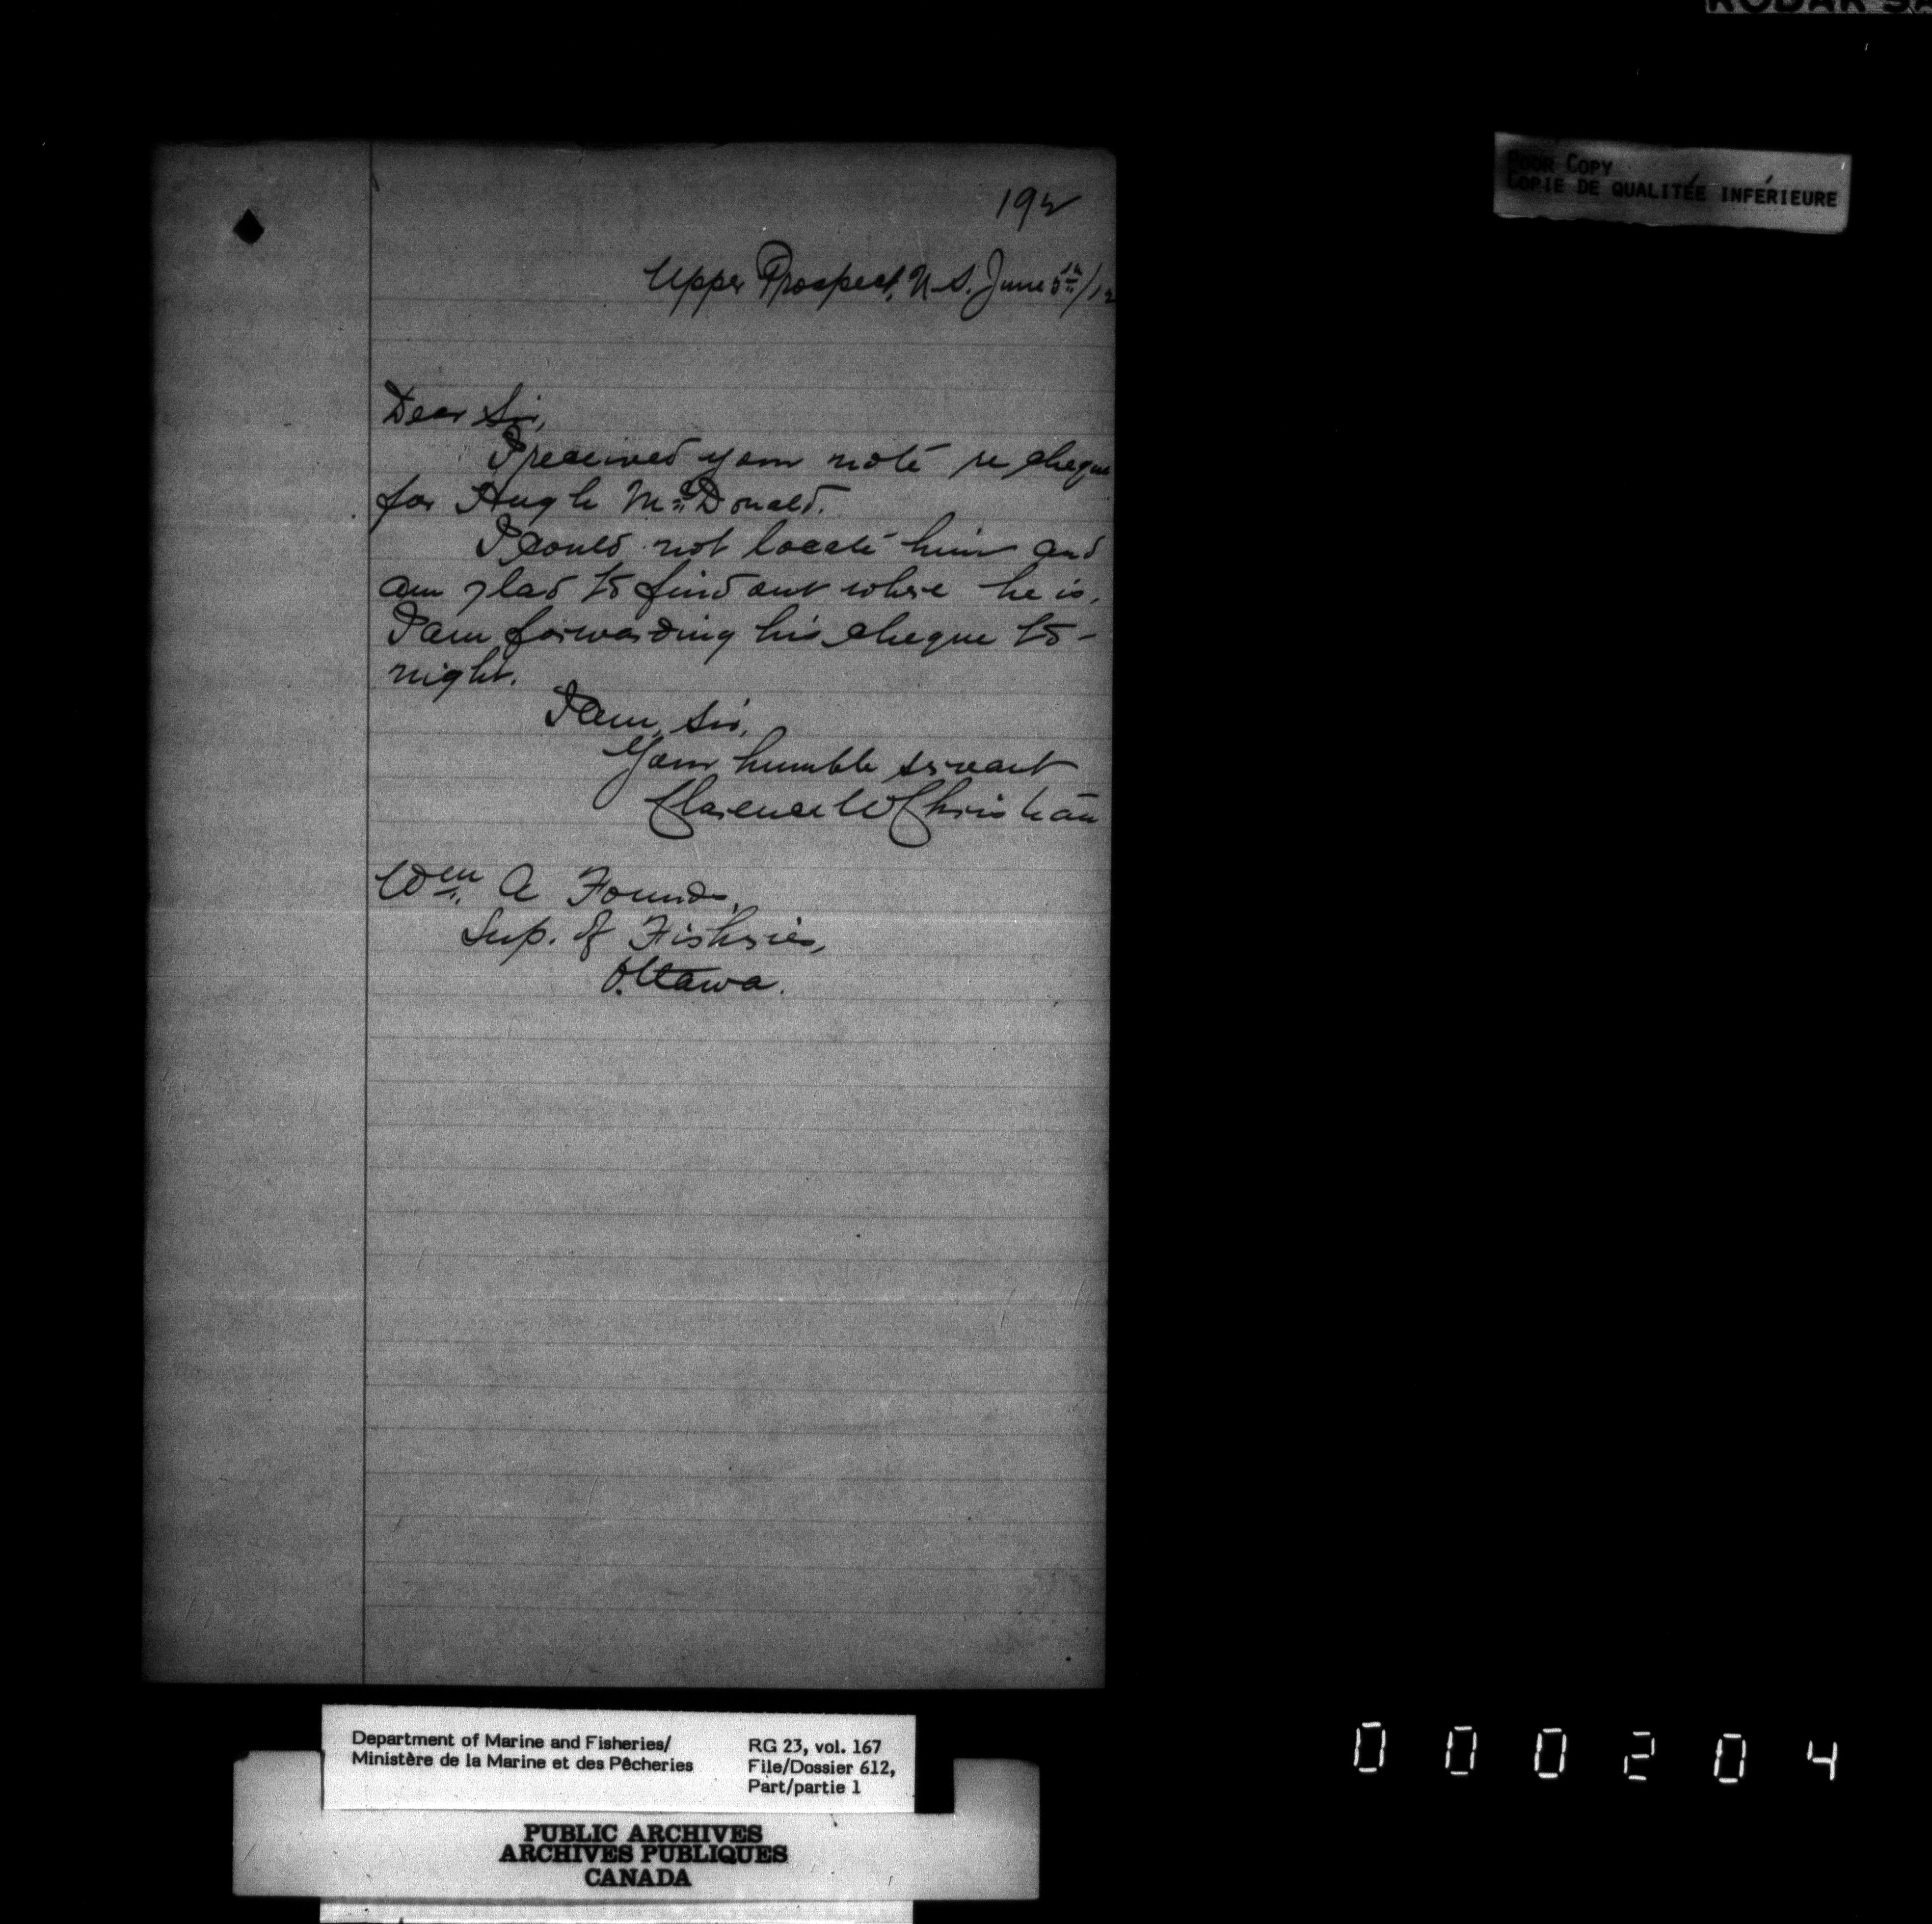 POOR COPY
COPIE DE QUALITÉE INFÉRIEURE
192
Upper Prospect, N.S. June 5th/12
Dear Sir,
I received your note re cheque
for Hugh McDonald.
I could not locate him and
am glad to find out where he is.
I am forwarding his cheque to-
night.
I am, Sir,
Your humble servant
Clarence W Christian
Wm. A Found,
Sup. of Fisheries,
Ottawa.
Department of Marine and Fisheries/
Ministère de la Marine et des Pêcheries
RG 23, vol. 167
File/Dossier 612,
Part/partie 1
PUBLIC ARCHIVES
ARCHIVES PUBLIQUES
CANADA
000204